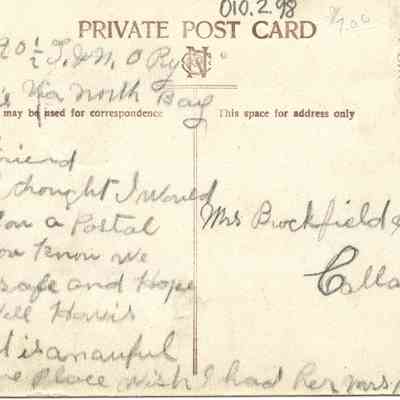 010.2.98
7.00
PRIVATE POST CARD
20½ T. & N. O Ry
Via North Bay
may be used for correspondence
This space for address only
friend
thought I would
you a Postal
you know we
safe and Hope
well Haris
it is an auful
Place wish I had her mrs
Mrs Brockfield &
Calla